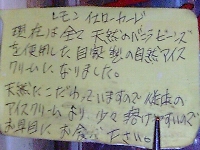 レモンイエローカード
現在は全て天然のバニラビーンズ
を使用した自家製の自然アイス
クリームになりました。
天然にこだわっていますので従来の
アイスクリームより少々溶けやすいので
お早目にお召
下さい。